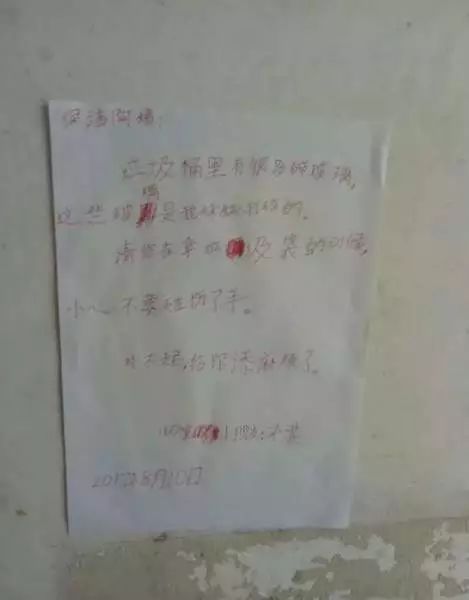 保洁阿姨:
垃圾桶里有很多碎玻璃,
璃
这些玻是我妹妹打碎的。
请您在拿垃圾袋的时候,
小心不要碰伤了手。
对不起,给你添麻烦了。
2017年8月10日